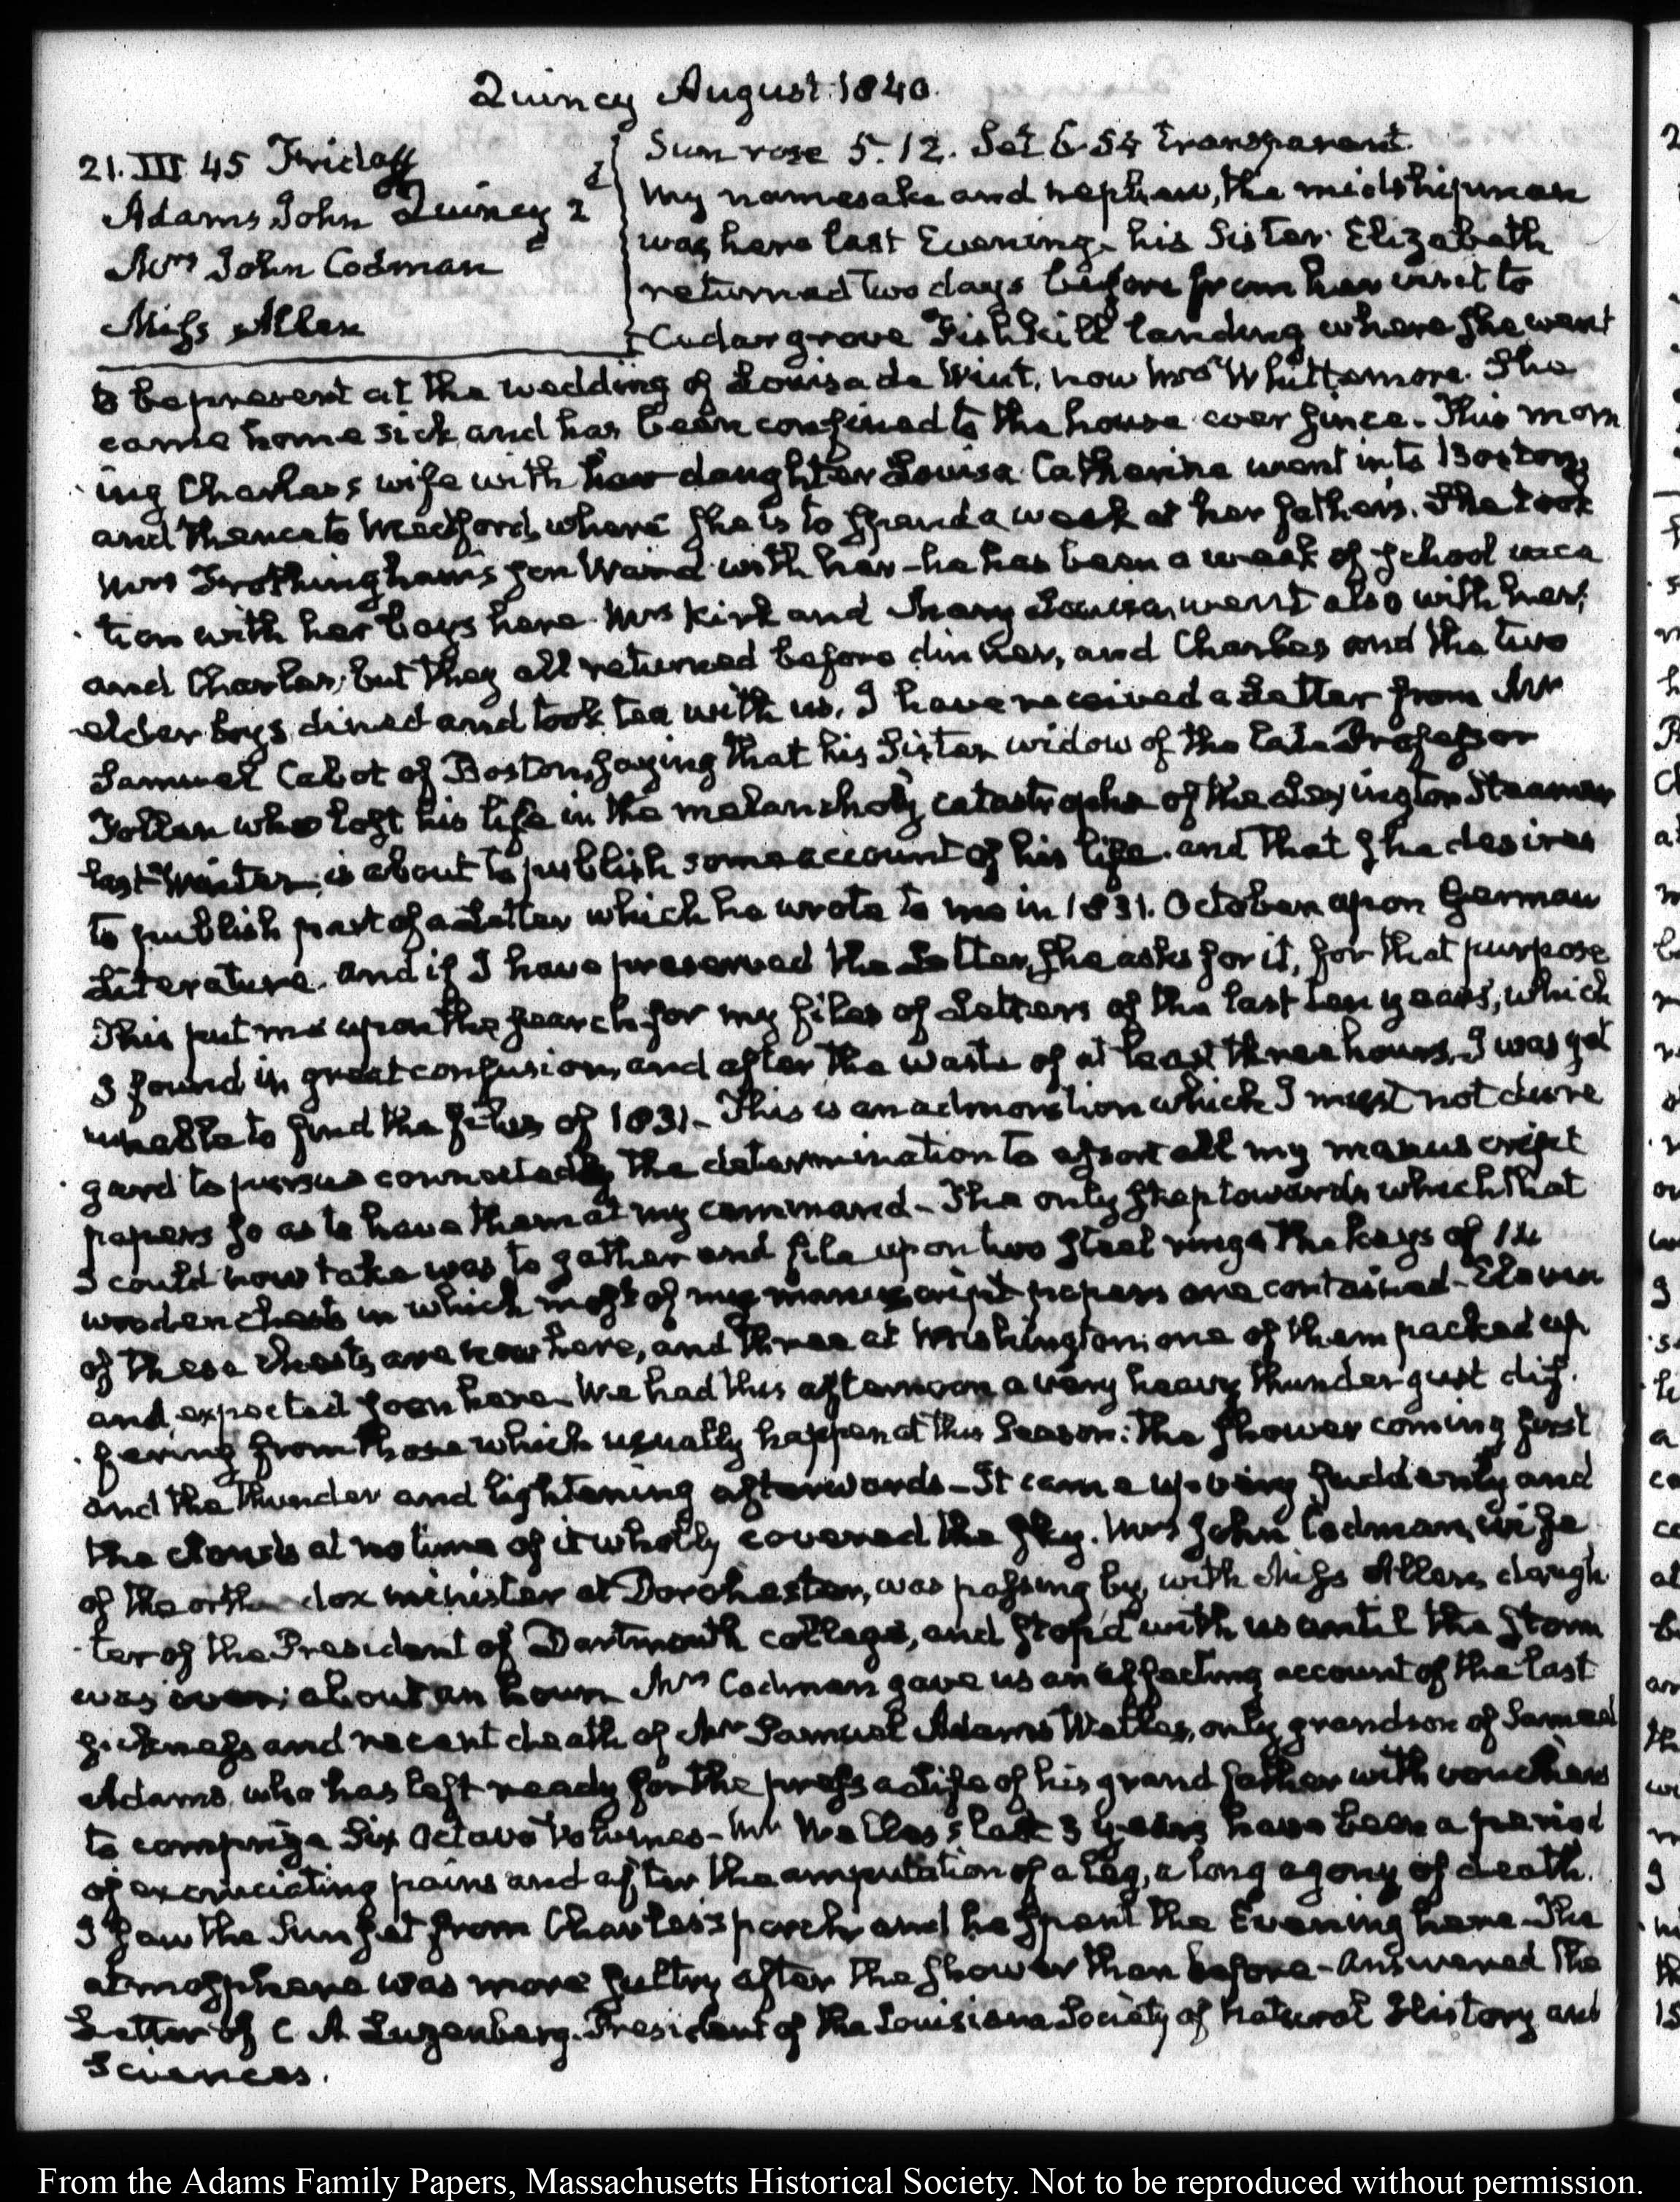 Quincy August 1840.
21. III. 45 Friday
Adams John Quincy 2d
Mrs John Codman
Miss Allen
Sun rose 5. 12. Set 6 54 transparent.
My namesake and nephew, the midshipman
was here last Evening. his Sister Elizabeth
returned two days before from her visit to
Cedar grove Fishkill landing where she went
to be present at the wedding of Louisa de Wint, now Mrs Whittemore. She
came home sick and has been confined to the house ever since. This morn
ing Charles's wife with her daughter Louisa Catherine went into Boston,
and thence to Medford, where she is to spend a week at her father's. She took
Mrs Frothingham's son Ward with her - he has been a week of school vaca
tion with her boys here. Mrs Kirk and Mary Louisa, went also with her;
and Charles; but they all returned before dinner, and Charles and the two
elder boys dined and took tea with us. I have received a Letter from Mr
Samuel Cabot of Boston, saying that his Sister widow of the late Professor
Follen who lost his life in the melancholy catastrophe of the Lexington Steamer
last Winter, is about to publish some account of his life. and that she desires
to publish part of a Letter which he wrote to me in 1831. October upon German
Literature. and if I have preserved the Letter, she asks for it, for that purpose
This put me upon the search for my files of Letters of the last ten years, which
I found in great confusion, and after the waste of at least three hours, I was yet
unable to find the files of 1831 - This is an admonition which I must not disre
gard to pursue connectedly the determination to assort all my manuscript
papers so as to have them at my command - The only step towards which that
I could now take was to gather and file upon two steel rings the keys of 14
wooden chests in which most of my manuscript papers are contained - Eleven
of these chests are now here, and three at Washington; one of them packed up
and expected soon here - We had this afternoon a very heavy thunder gust dif-
fering from those which usually happen at this Season: the shower coming first
and the thunder and lightening afterwards - It came up very suddenly and
the clouds at no time of it wholly covered the sky. Mrs John Codman, wife
of the orthodox minister at Dorchester, was passing by, with Miss Allen, daugh
ter of the President of Dartmouth college, and stop'd with us until the storm
was over; about an hour Mrs Codman gave us an affecting account of the last
sickness and recent death of Mr Samuel Adams Welles, only grandson of Samuel
Adams, who has left ready for the press a Life of his grandfather with vouchers
to comprize Six Octavo Volumes - Mr Welles's last 3 years have been a period
of excruciating pains and after the amputation of a leg, a long agony of death.
I saw the Sun set from Charles's porch and he spent the Evening here - The
atmosphere was more sultry after the shower than before - Answered the
Letter of C A Luzenberg. President of the Louisiana Society of Natural History and
Sciences.
From the Adams Family Papers, Massachusetts Historical Society. Not to be reproduced without permission.